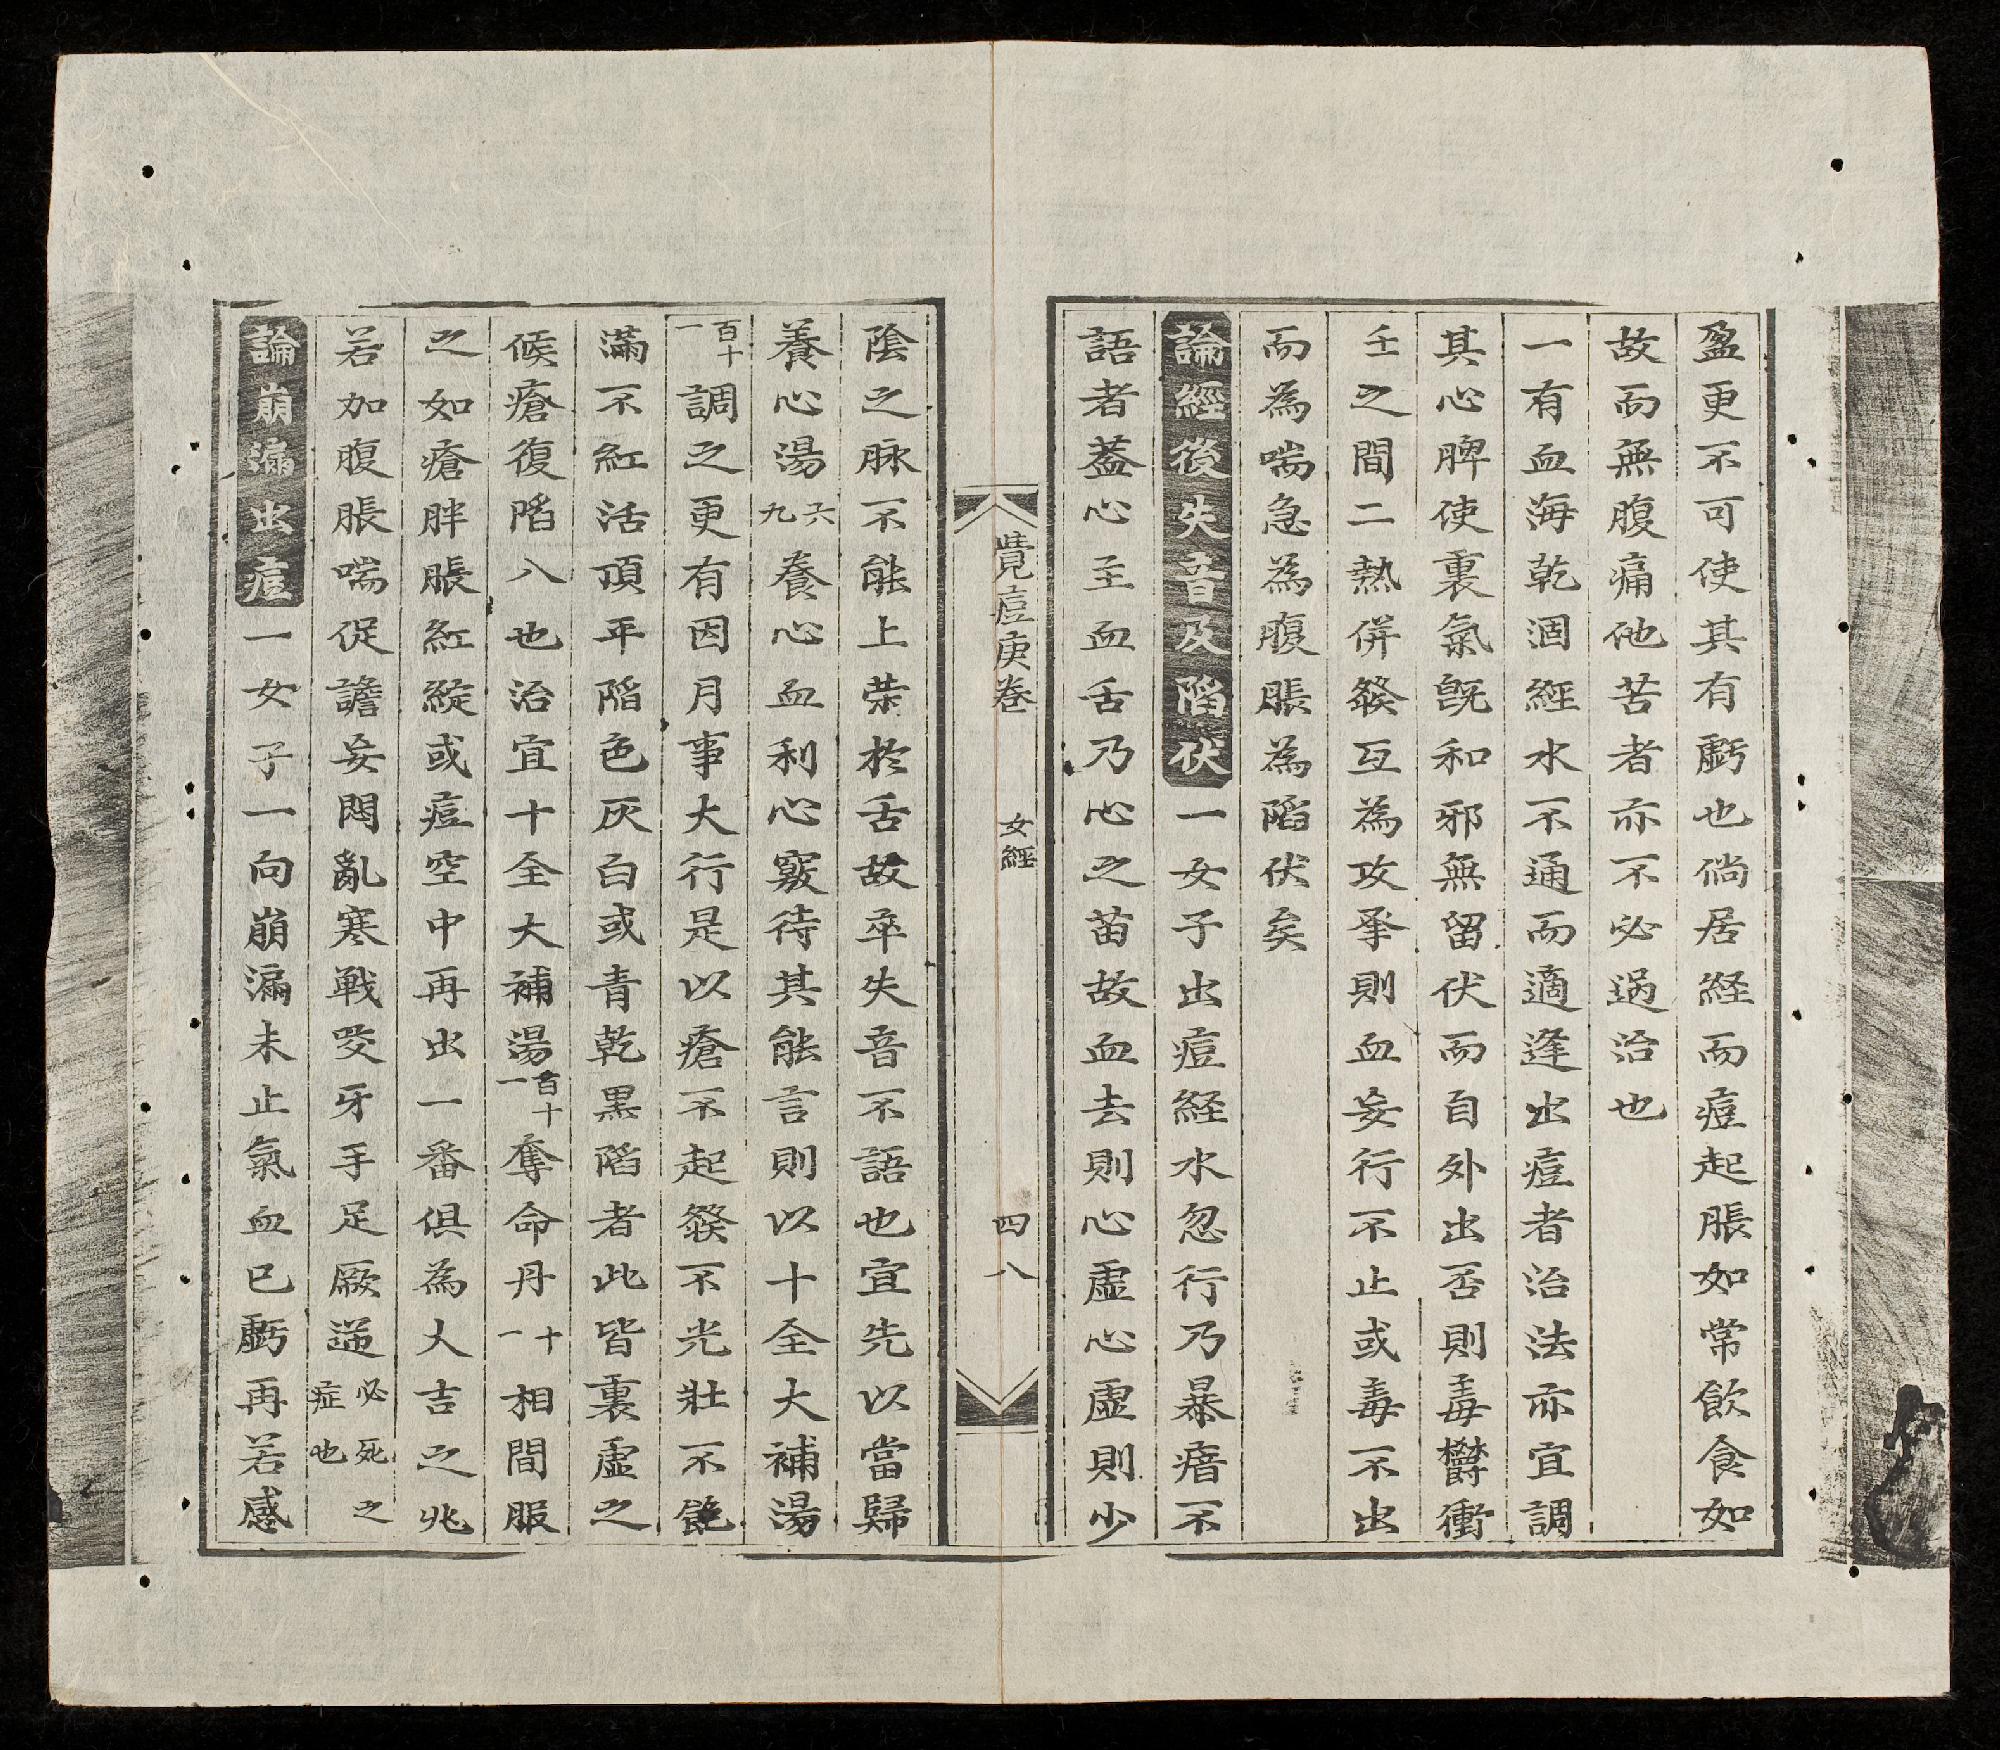 盈更不可使其有虧也倘居経而痘起脹如常飲食如
故而無腹痛他苦者亦不必過治也
一有血海乾涸經水不通而適逢出痘者治法亦宜調
其心脾使裏氣旣和邪無留伏而自外出否則毒欝衝
壬之間二熱併𤼵互為攻爭則血妄行不止或毒不出
而為喘急為腹脹為陷伏矣
論經後失音及陷伏一女子出痘経水忽行乃暴瘖不
語者葢心主血舌乃心之苗故血去則心虛心虛則少
覺痘庚巻
女經
四八
陰之脉不能上荣於舌故卒失音不語也宜先以當歸
養心湯六九養心血利心竅待其能言則以十全大補湯
百十一調之更有因月事大行是以瘡不起𤼵不光壯不飽
滿不紅活頂平陷色灰白或青乾黒陷者此皆裏虛之
候瘡復陷八也治宜十全大補湯百十一奪命丹十一相間服
之如瘡胖脹紅綻或痘空中再出一番俱為大吉之兆
若加腹脹喘促譫妄悶亂寒戰咬牙手足厥逆必死之症也
論崩漏出痘一女子一向崩漏未止氣血已虧再若感